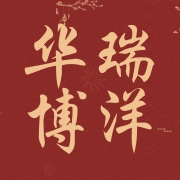 华瑞
博洋